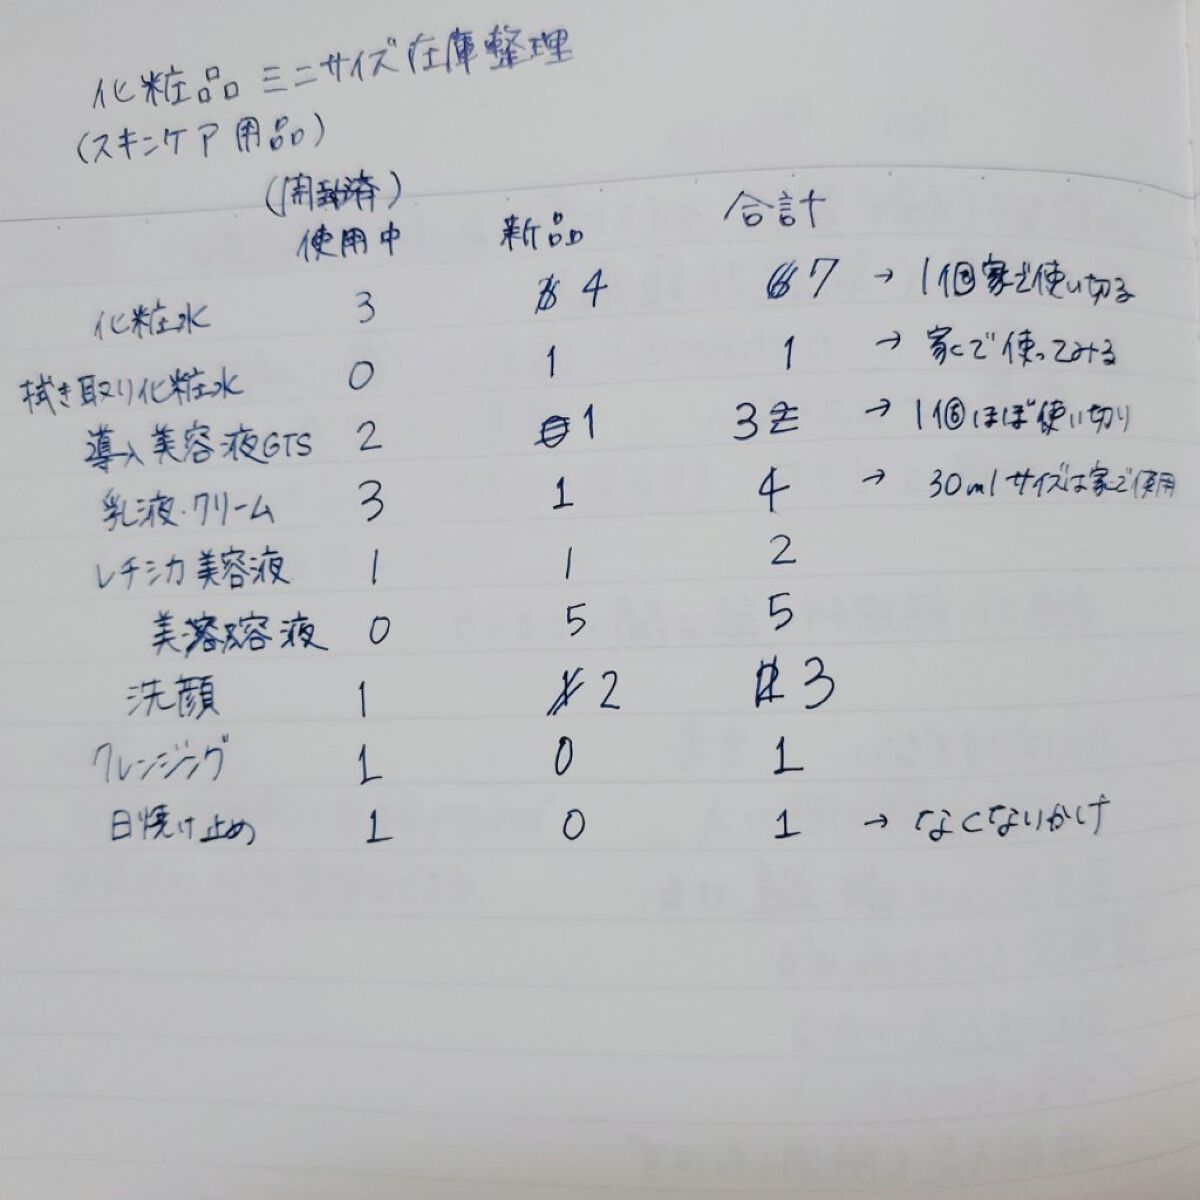 化粧品ミニサイズ在庫整理
(スキンケア用品)
(開封済)
使用中 新品 合計
化粧水 3 4 7 → 1個家で使い切る
拭き取り化粧水 0 1 1 → 家で使ってみる
導入美容液GTS 2 1 3 → 1個ほぼ使い切り
乳液・クリーム 3 1 4 → 30mlサイズは家で使用
レチシカ美容液 1 1 2
美容液 0 5 5
洗顔 1 2 3
クレンジング 1 0 1
日焼け止め 1 0 1 → なくなりかけ